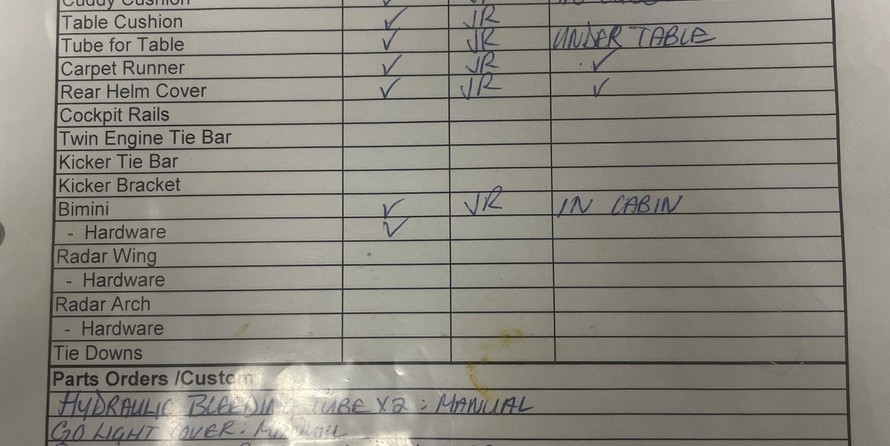 Cuddy Cushion ✓ JR
Table Cushion ✓ JR
Tube for Table ✓ JR UNDER TABLE
Carpet Runner ✓ JR ✓
Rear Helm Cover ✓ JR ✓
Cockpit Rails
Twin Engine Tie Bar
Kicker Tie Bar
Kicker Bracket
Bimini ✓ JR IN CABIN
- Hardware ✓
Radar Wing
- Hardware
Radar Arch
- Hardware
Tie Downs
Parts Orders /Custom
HYDRAULIC BLEEDING TUBE X2 : MANUAL
GO LIGHT COVER : MANUAL